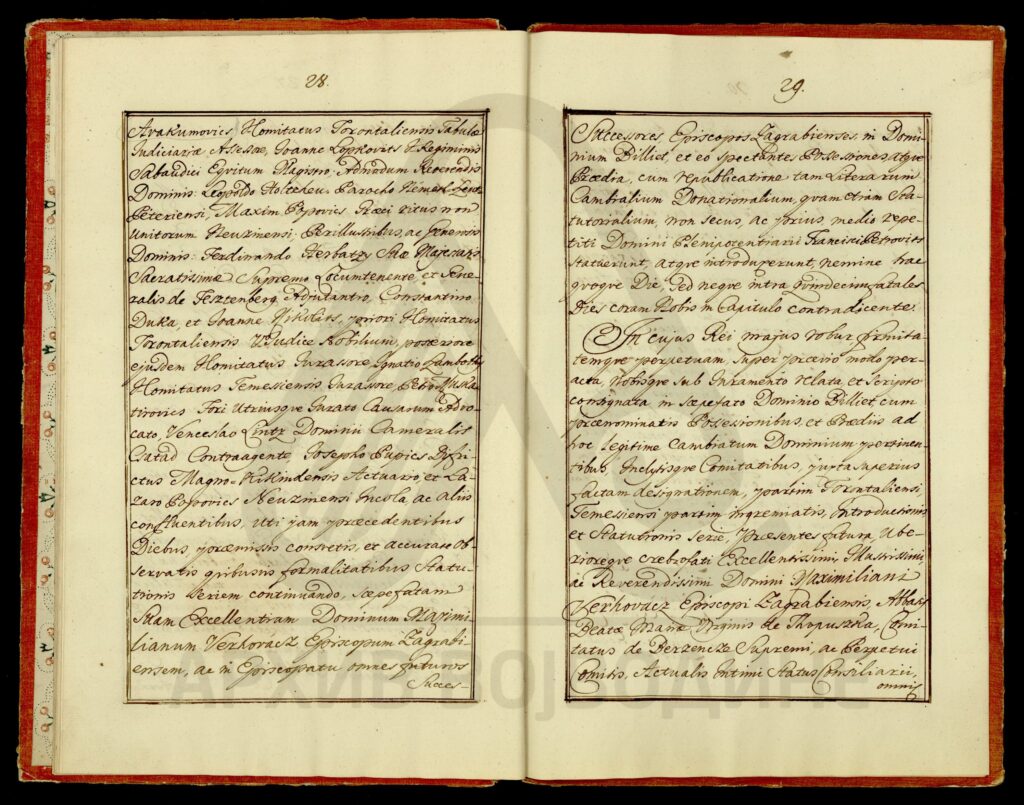 28.
Avakumovics, Comitatus Torontaliensis Tabulæ
Judiciariæ Assessore, Joanne Lopkovits Regiminis
Sabaudici Equitum Magistro. Admodum Reverendis
Dominis: Leopoldo Parocho Német Szent
Péteriensi, Maxim Popovics Græci ritus non
Unitorum Neuzinensi. Perillustribus, ac
Dominis: Ferdinando Suæ Majestatis
Sacratissimæ Supremo Locumtenente, et Gene-
ralis de Adjutantro, Constantino
Duka, et Joanne Nikolits, priori Comitatus
Torontaliensis V Judice Nobilium, posteriore
ejusdem Comitatus Jurassore, Ignatio
Comitatus Temesiensis Jurassore, Petro
tirovics Fori Utriusque Jurato Causarum Advo-
cato, Venceslao Lintz Dominii Cameralis
Csatad Contraagente, Josepho Pupics Distri-
ctus Magno-Kikindensis Actuario, et La-
zaro Popovics Neuzinensi Incola, ac aliis
confluentibus, uti jam præcedentibus
Diebus, præmissis consvetis, et accurate Ob-
servatis quibusvis formalitatibus Statu-
tionis Seriem continuando, sæpefatam
Suam Excellentiam Dominum Maximi-
lianum Verhovacz Episcopum Zagrabi-
ensem, ac in Episcopatu omnes futuros
Succes-
29.
Successores Episcopos Zagrabienses, in Domi-
nium Billiet, et eo spectantes Possessiones atque
Prædia, cum republicatione tam Literarum
Cambialium Donationalium, quam etiam Sta-
tutorialium, non secus, ac prius medio repe-
titi Domini Plenipotentiarii Francisci Petrovits
statuerunt, atque introduxerunt, nemine hac
quoque Die, sed neque intra quindecim fatales
Dies coram Nobis in Capitulo contradicente.
In cujus Rei majus robur firmita-
temque perpetuam, super prævio modo per-
acta, Nobisque sub Juramento relata, et scripto
consignata in sæpefato Dominio Billiet, cum
prænominatis Possessionibus, et Prædiis ad
hoc legitime Cambiatum Dominium pertinen-
tibus, Inclytisque Comitatibus, juxta superius
factam designationem, partim Torontaliensi,
Temessiensi partim ingremiatis, Introductionis
et Statutionis serie, Præsentes futura, Ube-
rioreque crebrofati Excellentissimi, Illustrissimi,
ac Reverendissimi Domini Maximiliani
Verhovacz Episcopi Zagrabiensis, Abbatis
Beatæ Mariæ Virginis de Thopuszka, Comi-
tatus de Berzencze Supremi, ac Perpetui
Comitis, Actualis Intimi Status Consiliarii,
omnis
АРХИВ ВОЈВОДИНЕ